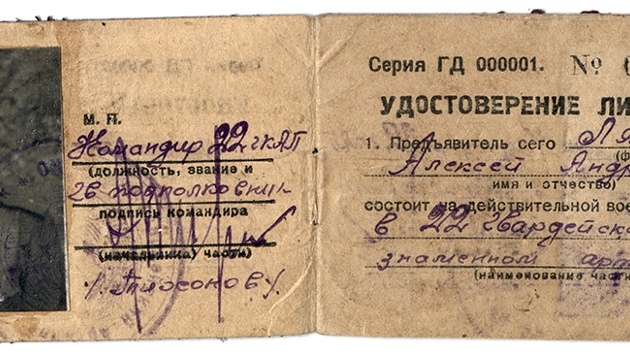 М. П.
Командир 22 гКАП
(должность, звание и
гв подполковник
подпись командира
(начальника) части)
Серия ГД 000001. №
УДОСТОВЕРЕНИЕ ЛИ
1. Предъявитель сего Ля
Алексей Андр
имя и отчество)
состоит на действительной вое
в 22 Гвардейско
знаменном арт
(наименование части